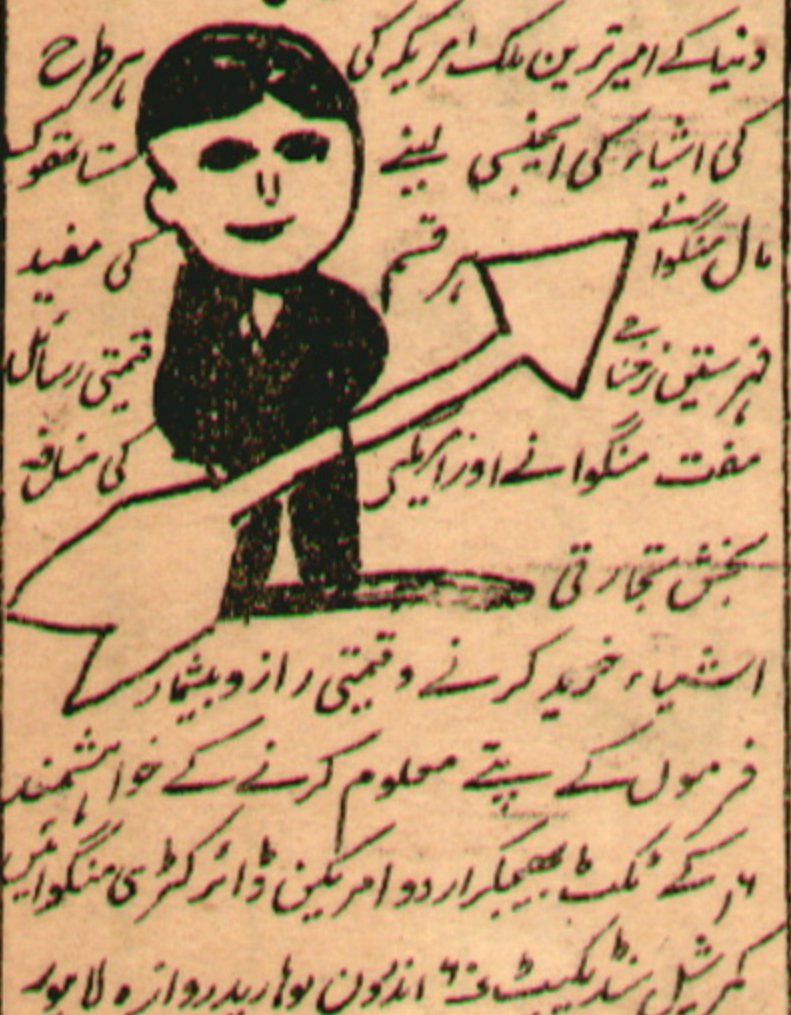 دنیا کے امیر ترین ملک امریکہ کی ہر طرح
کی اشیاء کی ایجنسی لینے سستا تھوک
مال منگوانے ہر قسم کی مفید
فہرستیں نرخنامے قیمتی رسائل
مفت منگوانے اور امریکی کی منافع
بخش تجارتی
اشیاء خرید کرنے و قیمتی راز و بیشمار
فرموں کے پتے معلوم کرنے کے خواہشمند
کے ٹکٹ بھیجکر اردو امریکن ڈائرکٹری منگوائیں
کمرشل سنڈیکیٹ اندرون لوہاریدروازہ لاہور